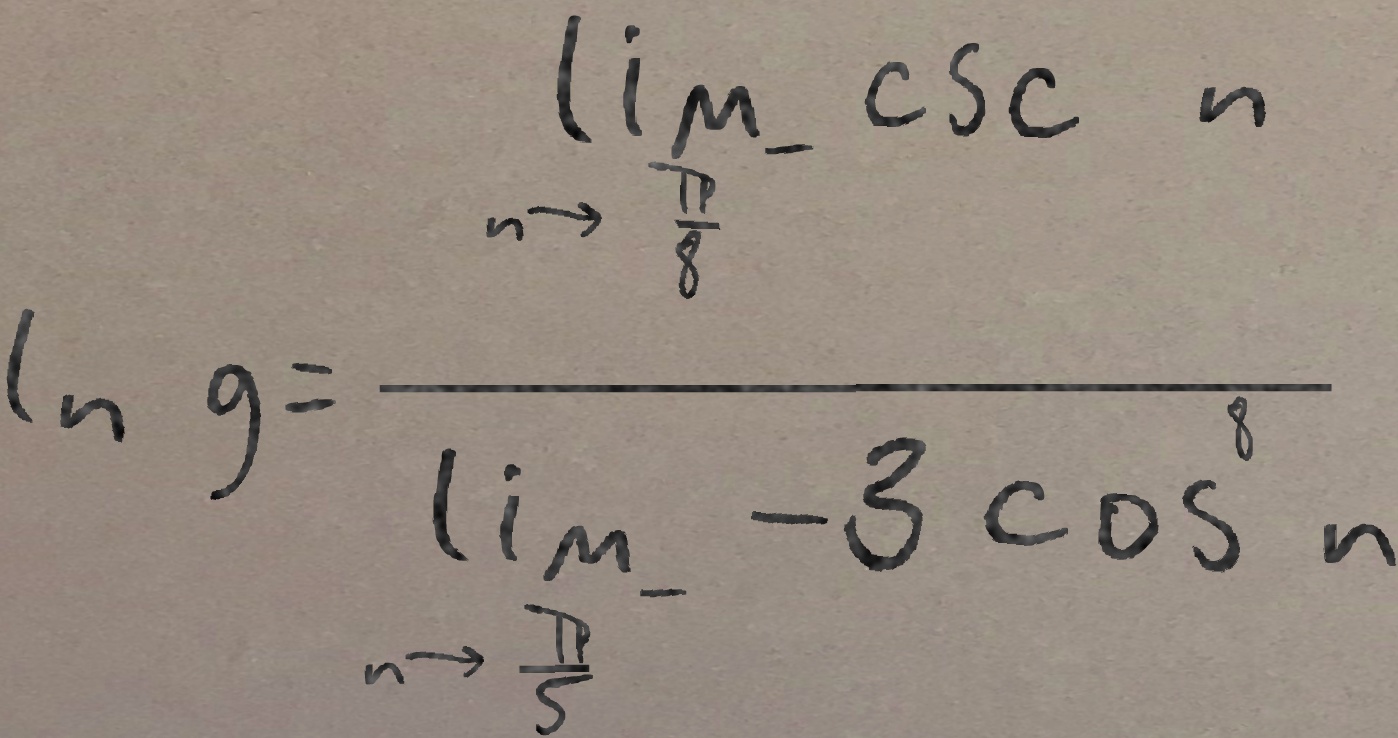 \ln g = \frac{\lim_{n \to \frac{\pi}{8}^-} \csc n}{\lim_{n \to \frac{\pi}{5}^-} -3 \cos^8 n}